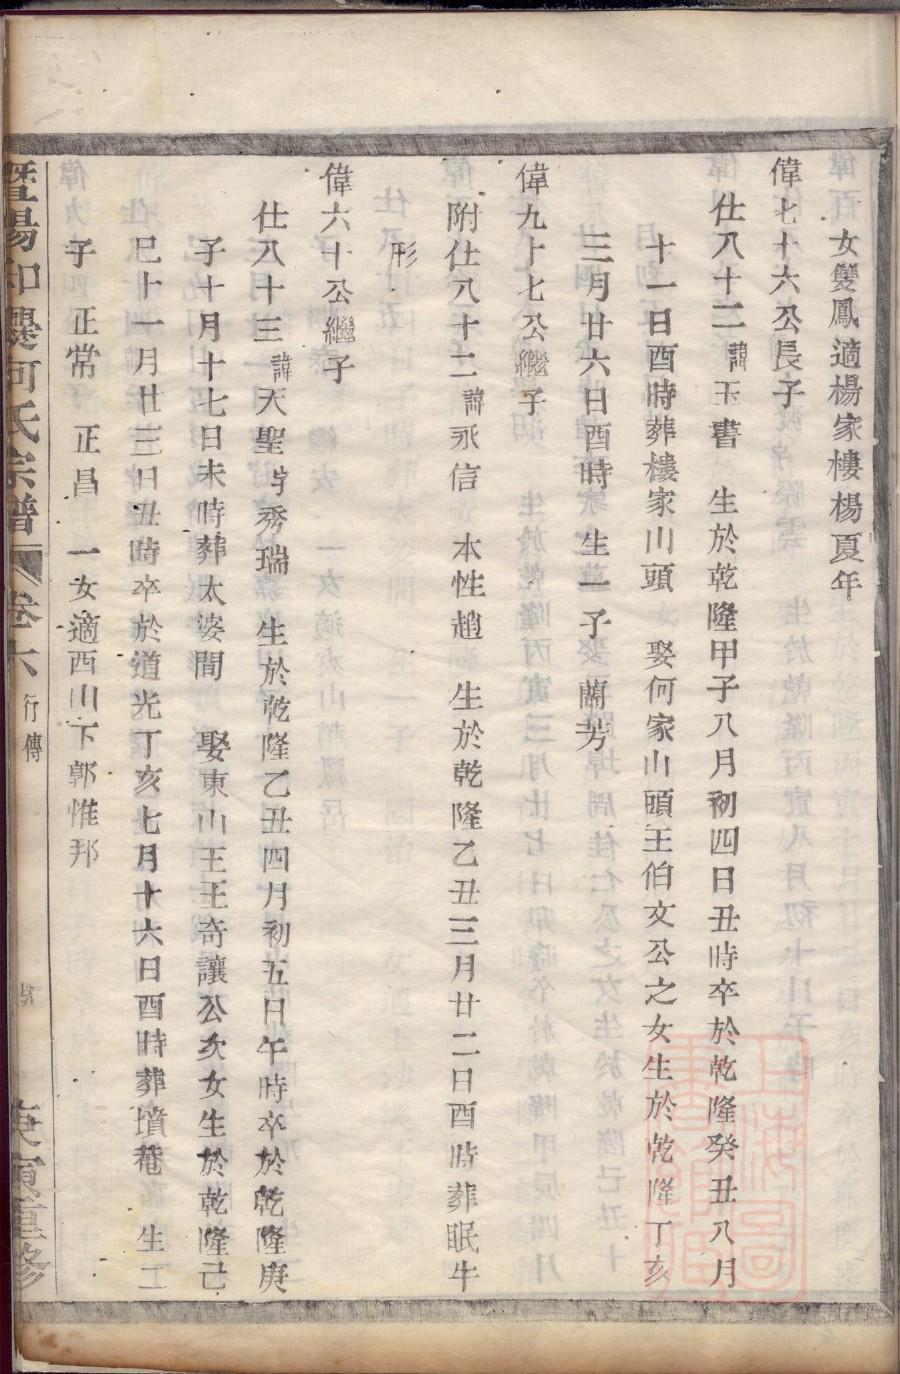 女雙鳳適楊家樓楊夏年
偉七十六公長子
仕八十二諱玉書 生於乾隆甲子八月初四日丑時卒於乾隆癸丑八月
十一日酉時葬樓家山頭 娶何家山頭王伯文公之女生於乾隆丁亥
三月廿六日酉時 生一子 蘭芳
偉九十七公繼子
附仕八十二諱永信 本性趙 生於乾隆乙丑三月廿二日酉時葬眠牛
形
偉六十公繼子
仕八十三諱天聖字秀瑞 生於乾隆乙丑四月初五日午時卒於乾隆庚
子十月十七日未時葬太婆間 娶東山王王奇讓公次女生於乾隆己
巳十一月廿三日丑時卒於道光丁亥七月十六日酉時葬墳菴 生二
子 正常 正昌 一女適西川下郭惟邦
暨陽和㸑何氏宗譜 卷六 行傳
庚寅重修